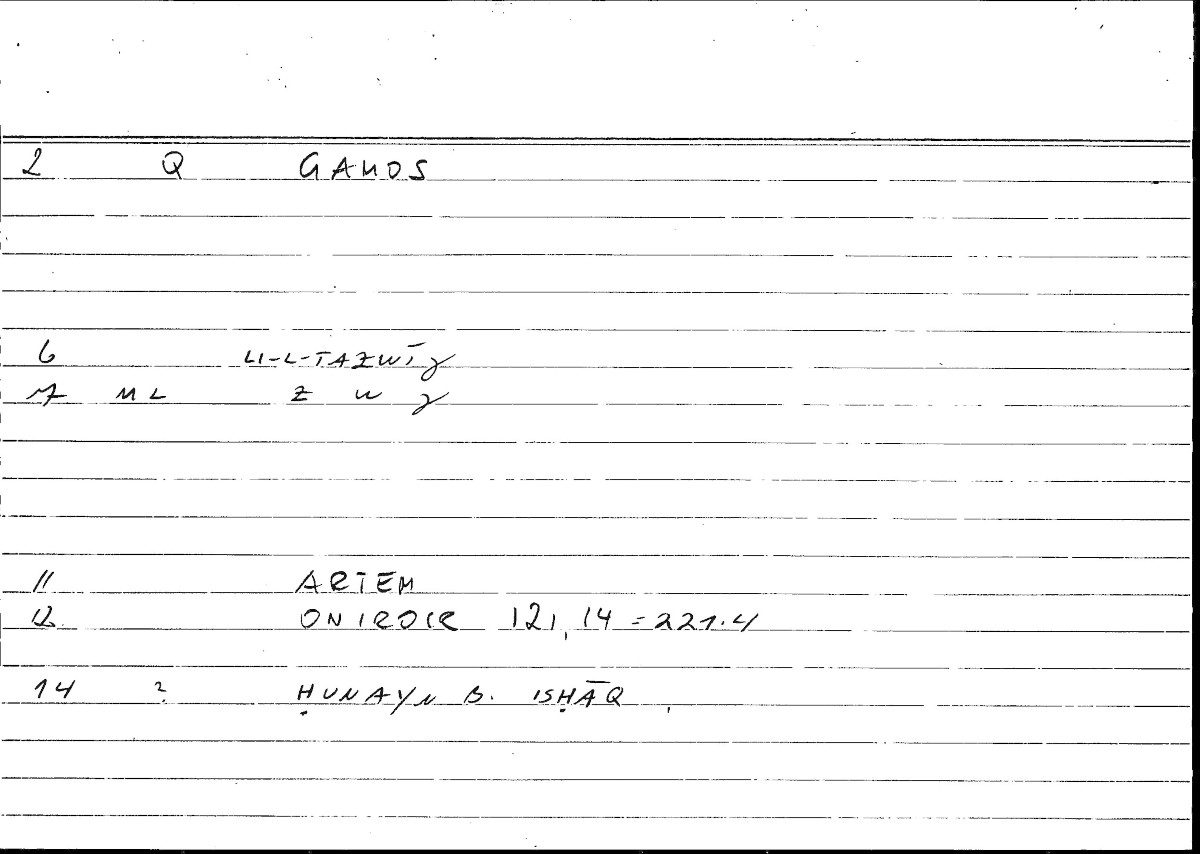 2 Q GAMOS
6 LI-L-TAZWĪǧ
7 ML Z W ǧ
11 ARTEM
12 ONIROCR 121,14 = 221.4
14 ? ḤUNAYN B. ISḤĀQ